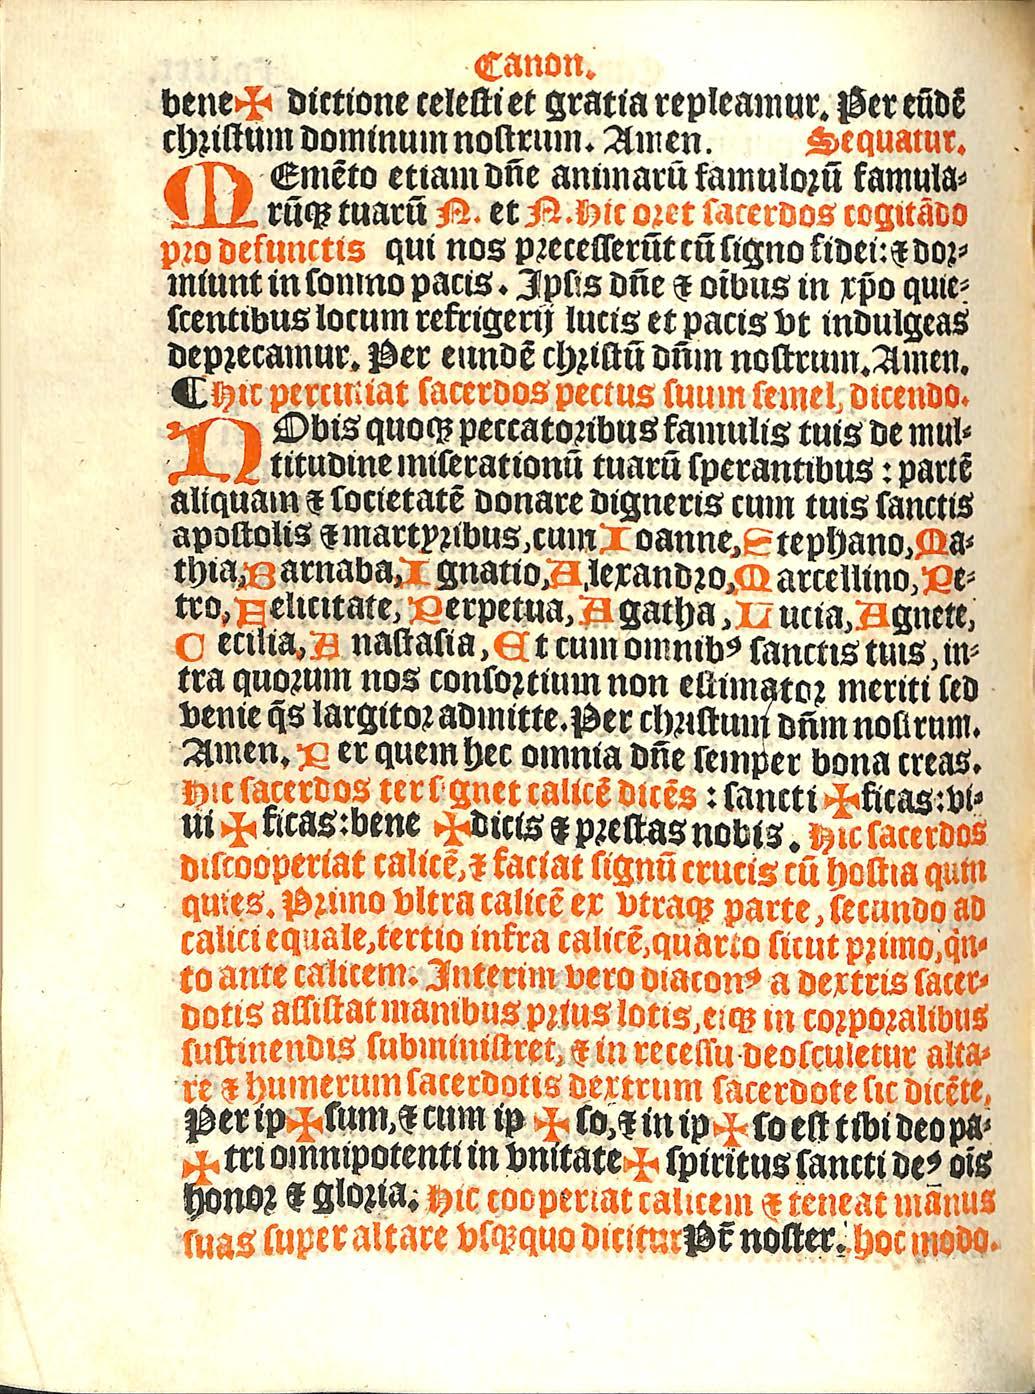 Canon.
bene✠ dictione celesti et gratia repleamur. Per eūdē
christum dominum nostrum. Amen. Sequatur.
MEmēto etiam dn̄e animarū famulorū famula⸗
rūqꝫ tuarū N. et N. Hic oret sacerdos cogitādo
pro defunctis qui nos precesserūt cū signo fidei: ⁊ dor⸗
miunt in somno pacis. Ipsis dn̄e ⁊ oībus in xp̄o quie⸗
scentibus locum refrigerij lucis et pacis vt indulgeas
deprecamur. Per eundē christū dn̄m nostrum. Amen.
¶ Hic percutiat sacerdos pectus suum semel, dicendo.
NObis quoqꝫ peccatoribus famulis tuis de mul⸗
titudine miserationū tuarū sperantibus : partē
aliquam ⁊ societatē donare digneris cum tuis sanctis
apostolis ⁊ martyribus, cum Ioanne, Stephano, Ma⸗
thia, Barnaba, Ignatio, Alexandro, Marcellino, Pe⸗
tro, Felicitate, Perpetua, Agatha, Lucia, Agnete,
Cecilia, Anastasia, Et cum omnibꝰ sanctis tuis, in⸗
tra quorum nos consortium non estimator meriti sed
venie q̄s largitor admitte. Per christum dn̄m nostrum.
Amen. Per quem hec omnia dn̄e semper bona creas.
Hic sacerdos ter signet calicē dicēs : sancti ✠ficas: vi⸗
ui ✠ ficas: bene ✠dicis ⁊ prestas nobis. Hic sacerdos
discooperiat calicē, ⁊ faciat signū crucis cū hostia quin
quies. Primo vltra calicē ex vtraqꝫ parte, secundo ad
calici equale, tertio infra calicē, quarto sicut primo, qn̄⸗
to ante calicem. Interim vero diaconꝰ a dextris sacer⸗
dotis assistat manibus prius lotis, eiqꝫ in corporalibus
sustinendis subministret, ⁊ in recessu deosculetur alta⸗
re ⁊ humerum sacerdotis dextrum sacerdote sic dicēte,
Per ip✠sum, ⁊ cum ip ✠ so, ⁊ in ip ✠ so est tibi deo pa⸗
✠ tri omnipotenti in vnitate ✠ spiritus sancti deꝰ oīs
honor ⁊ gloria. Hic cooperiat calicem ⁊ teneat manus
suas super altare vsqꝫquo dicitur Pr̄ noster. hoc modo.